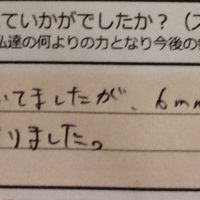 ていかがでしたか？（ス
私達の何よりの力となり今後の
いてましたが、6mm
りました。